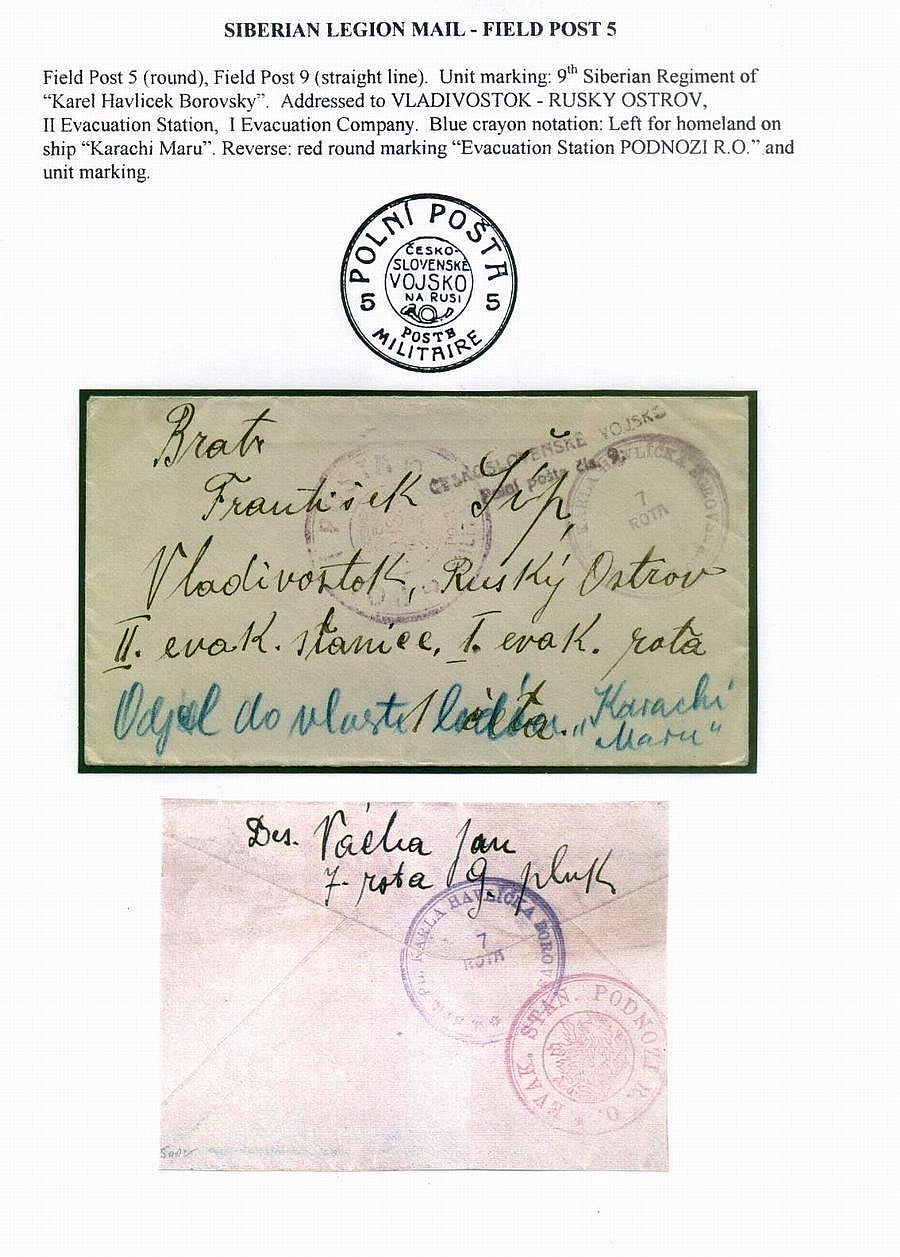 SIBERIAN LEGION MAIL - FIELD POST 5
Field Post 5 (round), Field Post 9 (straight line). Unit marking: 9th Siberian Regiment of
“Karel Havlicek Borovsky”. Addressed to VLADIVOSTOK - RUSKY OSTROV,
II Evacuation Station, I Evacuation Company. Blue crayon notation: Left for homeland on
ship “Karachi Maru”. Reverse: red round marking “Evacuation Station PODNOZI R.O.” and
unit marking.
POLNÍ POŠTA
ČESKO-
SLOVENSKÉ
VOJSKO
NA RUSI
5 5
POSTE
MILITAIRE
Bratr
ČESKOSLOVENSKÉ VOJSKO
Polní pošta čís. 9.
KARLA HAVLÍČKA BOROVSK
7
ROTA
František Šíp,
Vladivostok, Ruský Ostrov
II. evak. stanice, I. evak. rota
Odjel do vlasti lodí „Karachi
Maru“
Des. Vácha Jan
7. rota 9. pluk
PL. KARLA HAVLÍČKA BOROV
7
ROTA
EVAK. STAN. PODNOZI R. O.